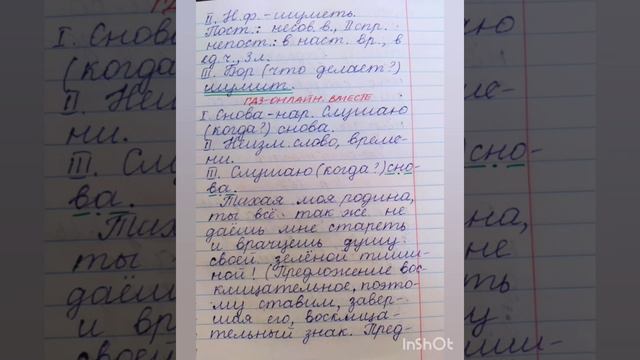 II. Н.ф. - шуметь.
Пост.: несов. в., II спр.
непост.: в наст. вр., в
ед. ч., 3 л.
III. Бор (что делает?)
шумит.
ГДЗ-ОНЛАЙН. ВМЕСТЕ
I. Снова - нар. Слушаю
(когда?) снова.
II. Неизм. слово, време-
ни.
III. Слушаю (когда?) сно-
ва.
Тихая моя родина,
ты всё так же не
даёшь мне стареть
и врачуешь душу
своей зелёной тиши-
ной! (Предложение вос-
клицательное, поэто-
му ставим, завер-
шая его, восклица-
тельный знак. Пред-
InShOt